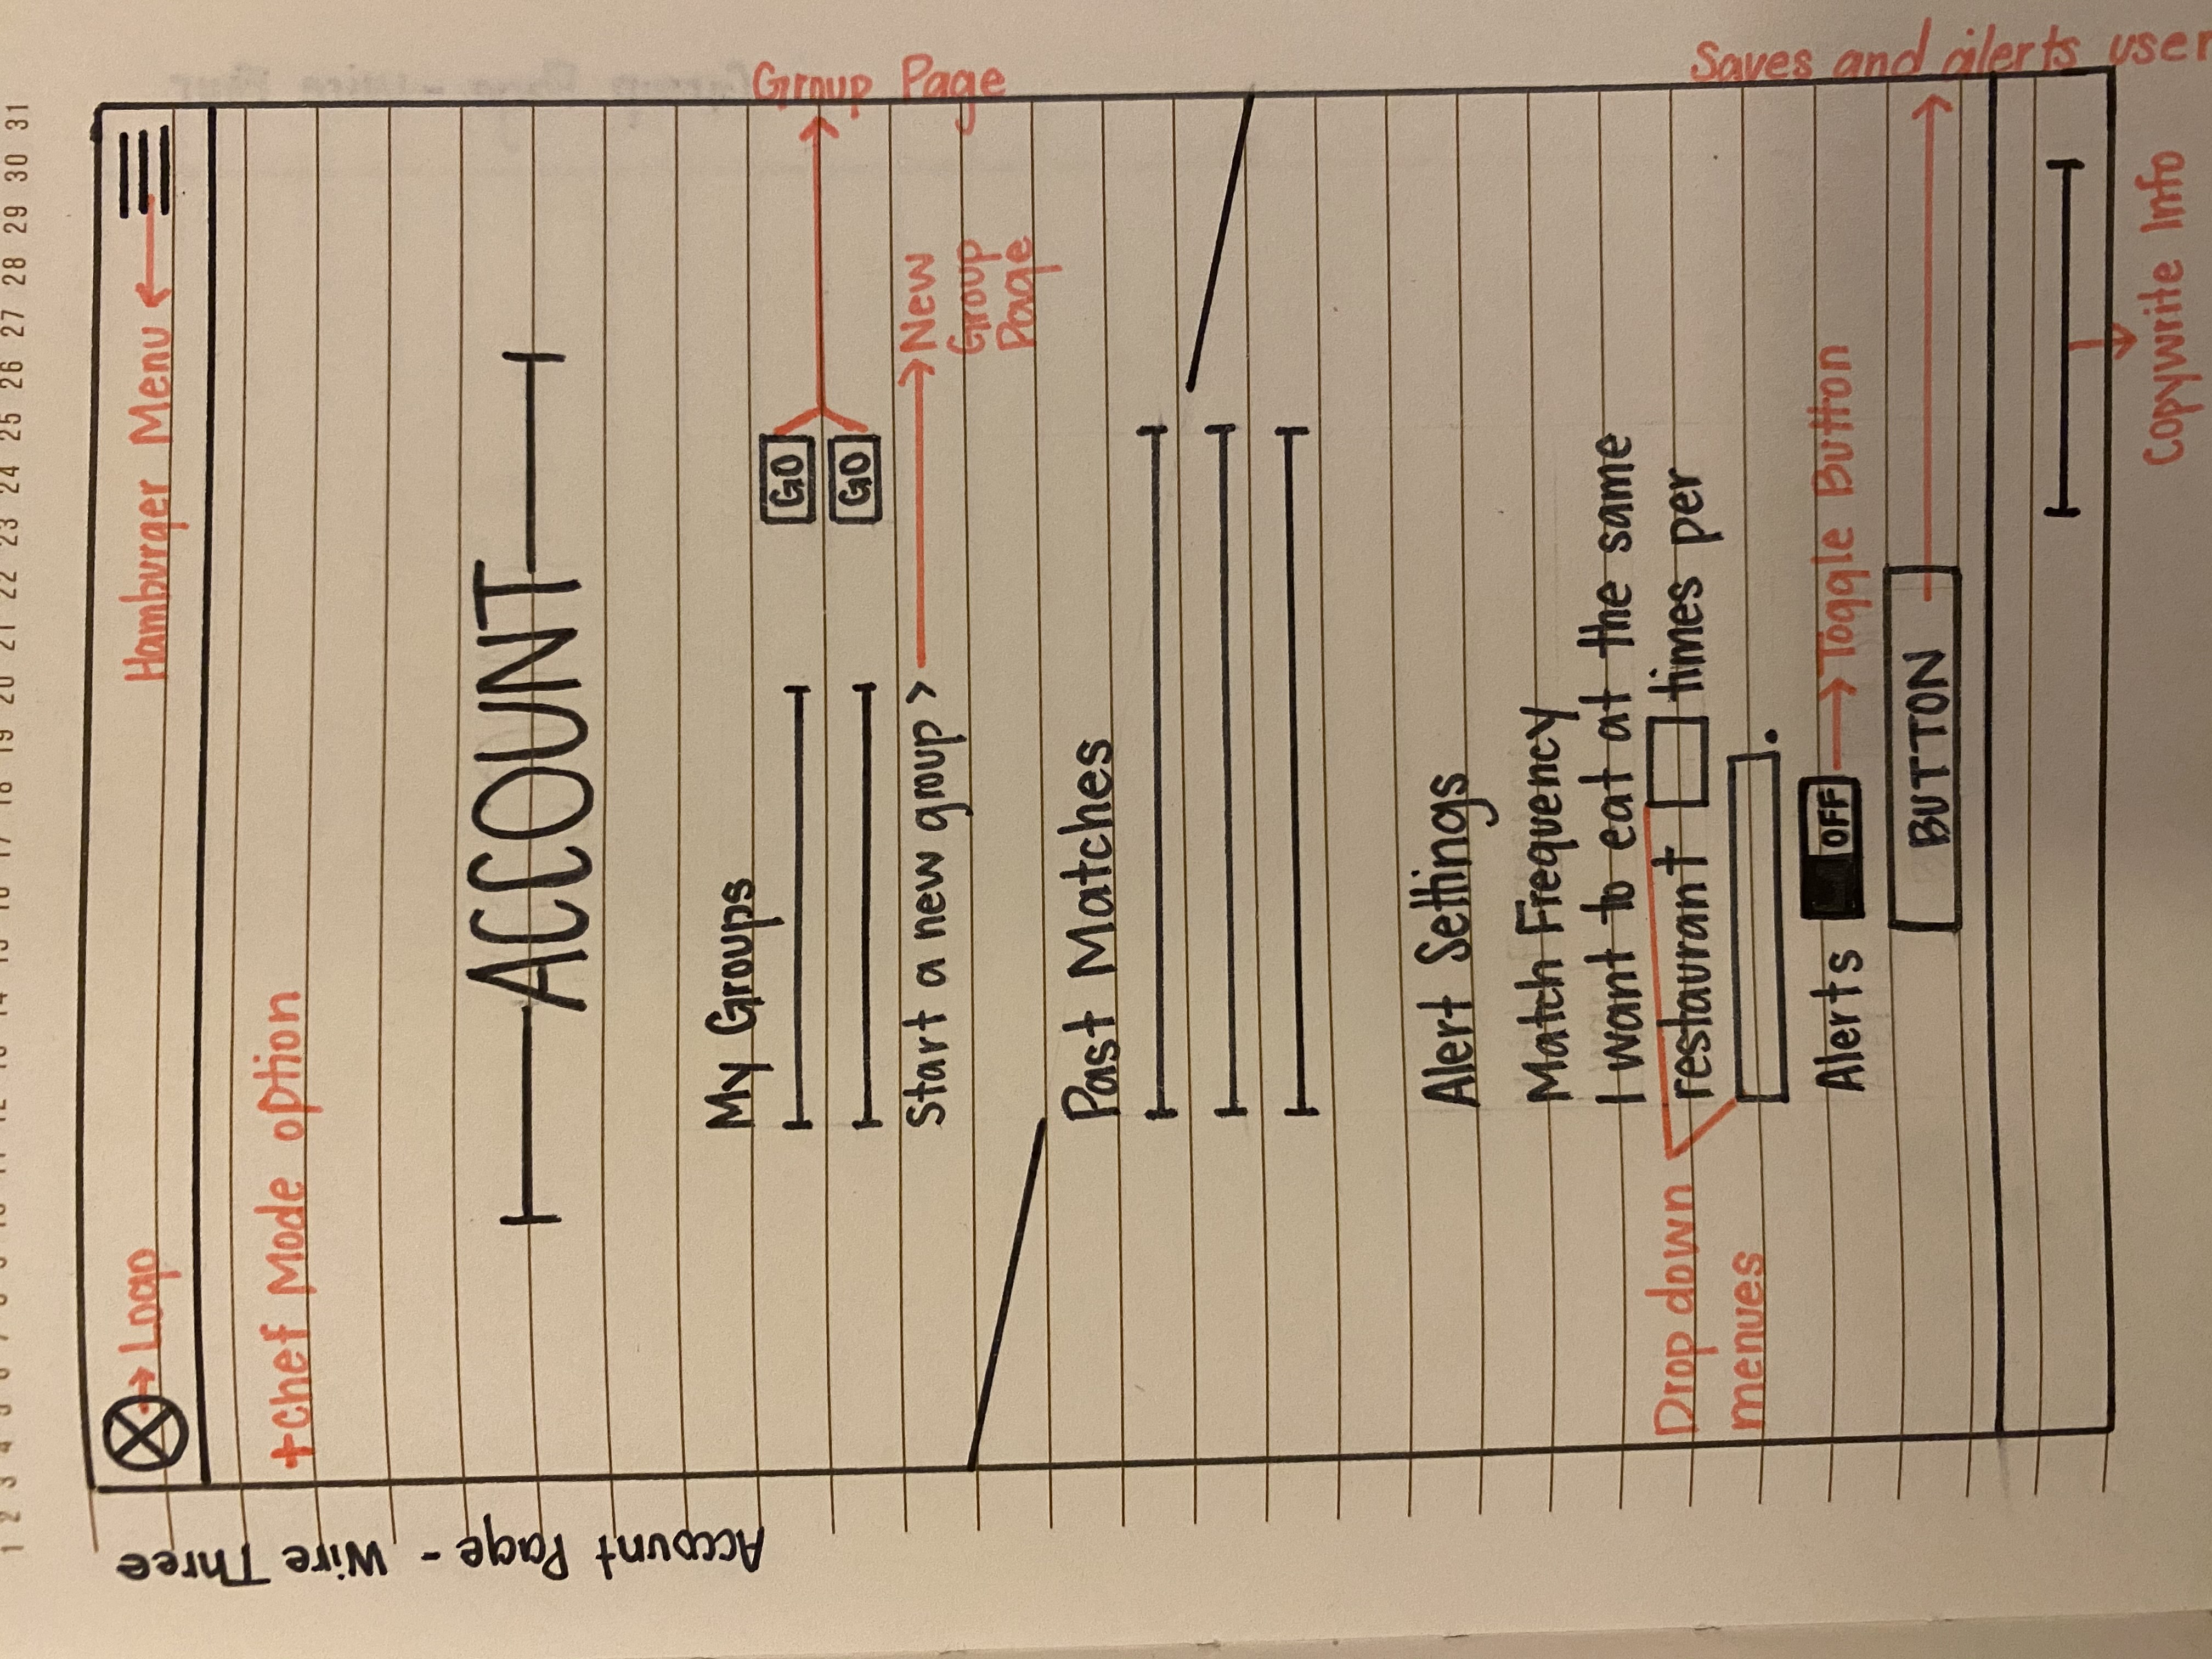 1 2 3 4 5 6 7 8 9 10 11 12 13 14 15 16 17 18 19 20 21 22 23 24 25 26 27 28 29 30 31
Account Page - Wire Three
Logo
Hamburger Menu
+Chef Mode option
ACCOUNT
My Groups
GO
GO
Group Page
Start a new group >
New
Group
Page
Past Matches
Alert Settings
Match Frequency
I want to eat at the same
restaurant times per
.
Drop down
menues
Alerts OFF
Toggle Button
BUTTON
Saves and alerts user
Copywrite Info